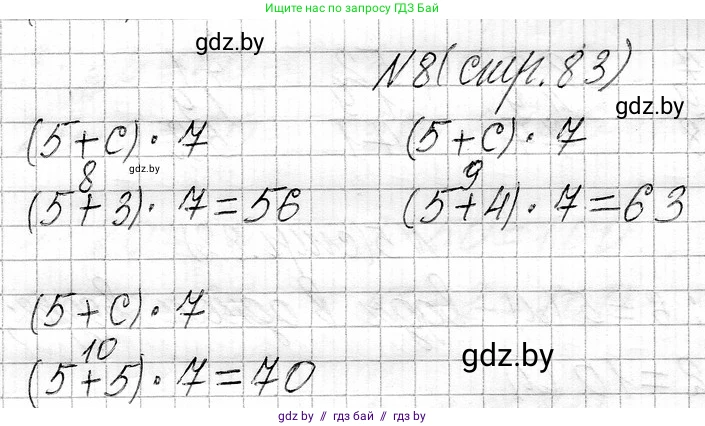 Ищите нас по запросу ГДЗ Бай
gdz.by
N8(стр.83)
gdz.by
(5+c)·7 (5+c)·7
gdz.by
8 9
(5+3)·7=56 (5+4)·7=63
(5+c)·7
10
gdz.by
(5+5)·7=70
gdz.by // гдз бай // гдз.бу